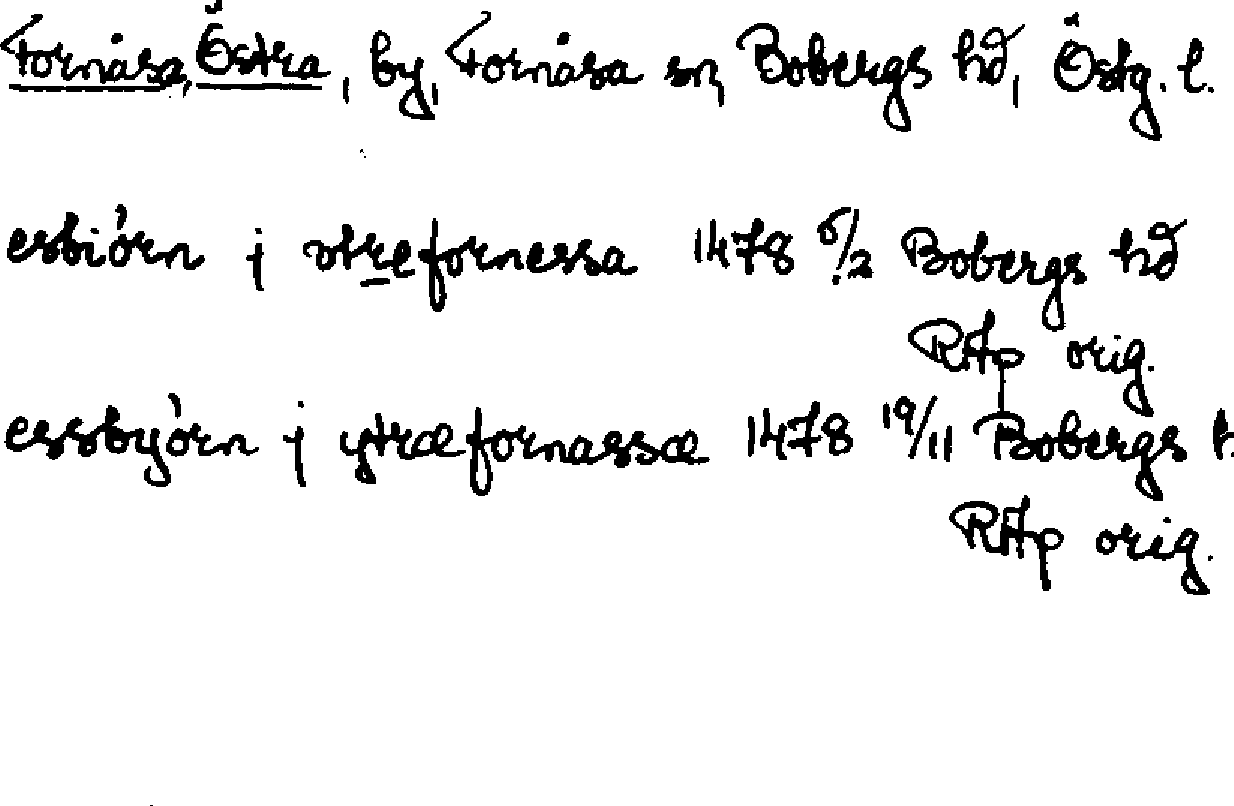 Fornåsa, Östra, by, Fornåsa sn, Bobergs hd, Östg. l.
esbiórn j vtrefornessa 1478 6/2 Bobergs hd
RAp orig.
essbyórn j ytræfornassæ 1478 19/11 Bobergs h.
RAp orig.